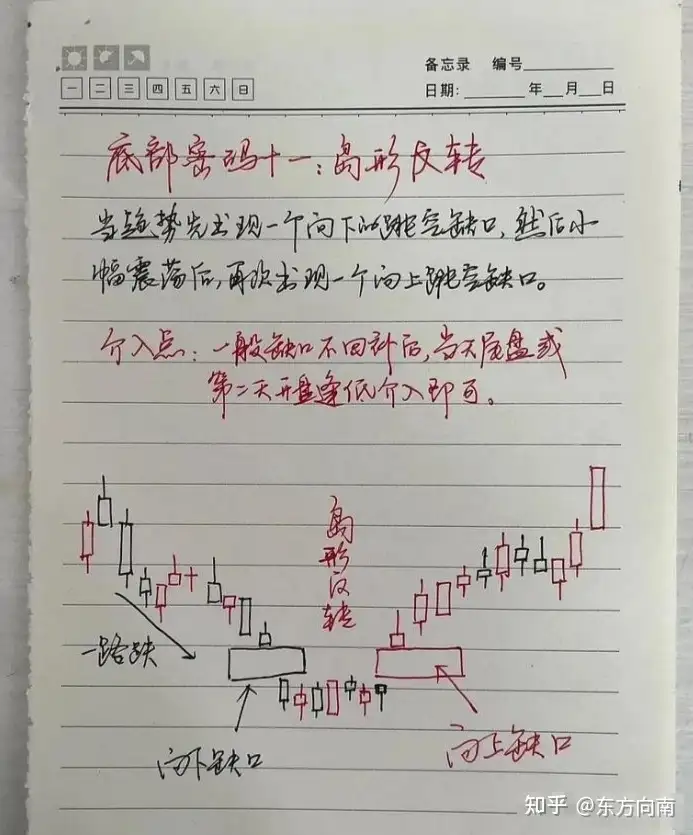 备忘录 编号
一 二 三 四 五 六 日
日期: 年 月 日
底部密码十一:岛形反转
当趋势先出现一个向下的跳空缺口,然后小
幅震荡后,再次出现一个向上跳空缺口。
介入点:一般缺口不回补后,当天尾盘或
第二天开盘逢低介入即可。
岛形反转
一路跌
向下缺口
向上缺口
知乎 @东方向南